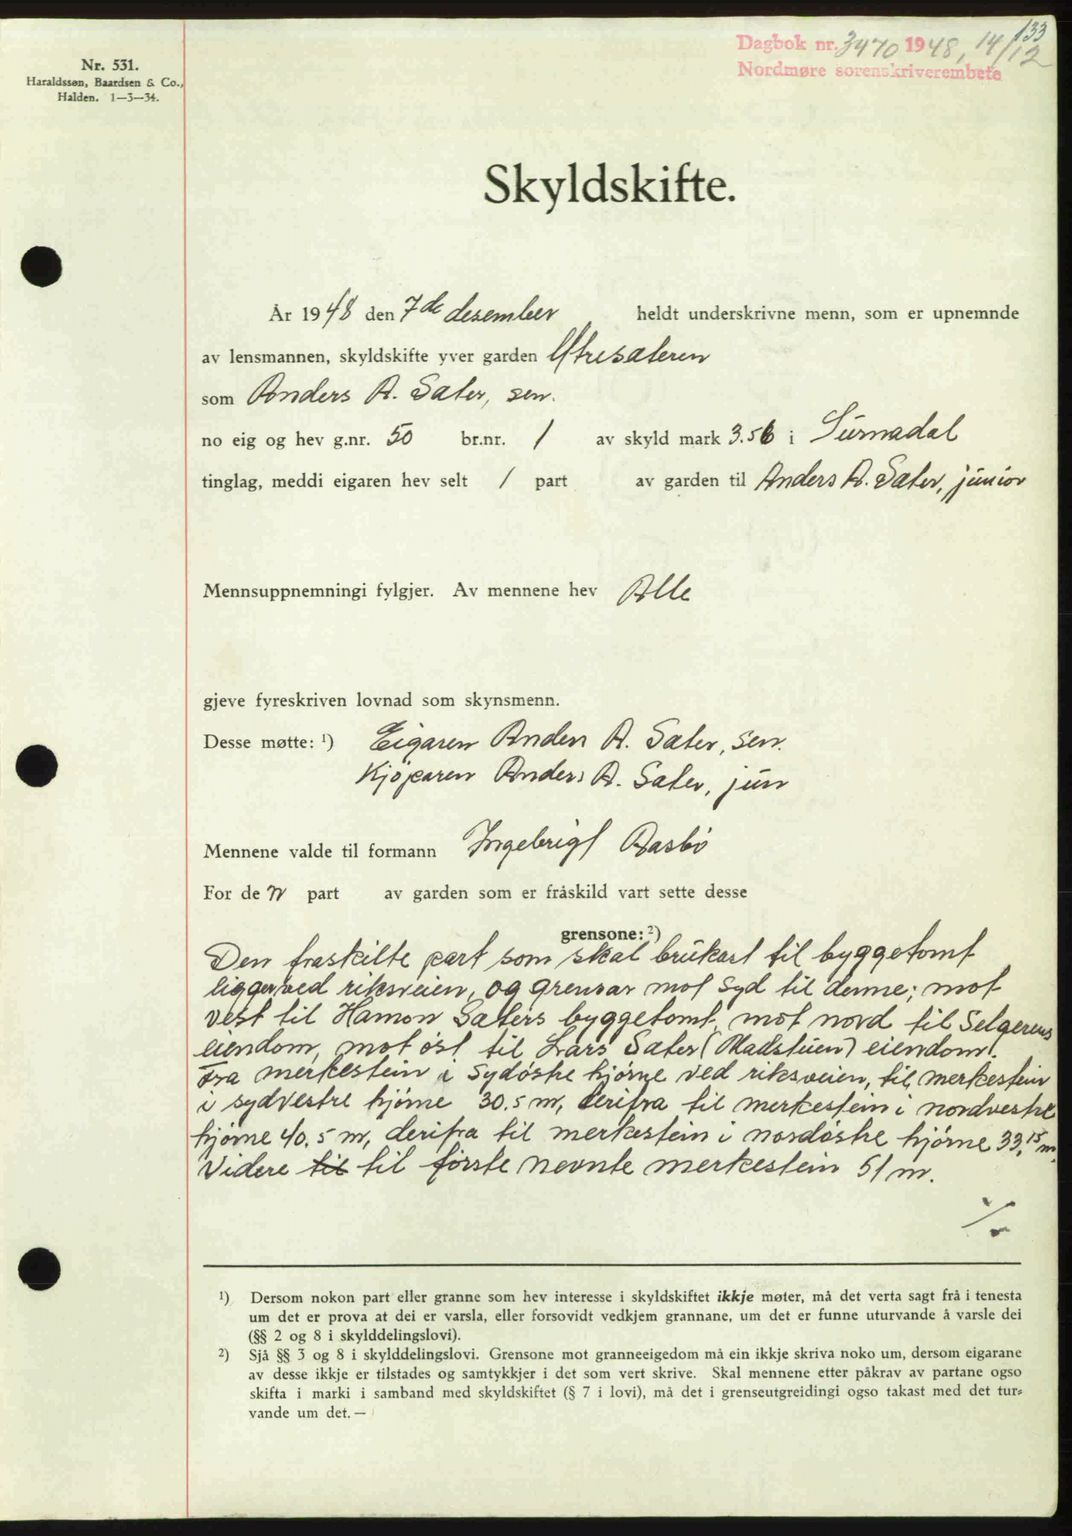 133
Dagbok nr. 3470 1948, 14/12
Nordmøre sorenskriverembete
Nr. 531.
Haraldssøn, Baardsen & Co.,
Halden. 1—3—34.
Skyldskifte.
År 1948 den 7de desember heldt underskrivne menn, som er upnemnde
av lensmannen, skyldskifte yver garden Ytresæteren
som Anders A. Sæter, sen.
no eig og hev g.nr. 50 br.nr. 1 av skyld mark 3.56 i Surnadal
tinglag, meddi eigaren hev selt 1 part av garden til Anders A. Sæter, junior
Mennsuppnemningi fylgjer. Av mennene hev Alle
gjeve fyreskriven lovnad som skynsmenn.
Desse møtte: ¹) Eigaren Anders A. Sæter, sen.
Kjöparen Anders A. Sæter, jun
Mennene valde til formann Ingebrigt Aasbö
For de n part av garden som er fråskild vart sette desse
grensone: ²)
Den fraskilte part som skal brukast til byggetomt
ligger ved riksveien, og grensar mot syd til denne; mot
vest til Hamon Sæters byggetomt, mot nord til Selgerens
eiendom, mot öst til Lars Sæter (Madsteien) eiendom.
Fra merkestein i sydöstre hjörne ved riksveien, til merkestein
i sydvestre hjörne 30.5 m, derifra til merkestein i nordvestre
hjörne 40.5 m, derifra til merkestein i nordöstre hjörne 33,15 m.
Videre til til förste nevnte merkestein 51 m.
./.
¹) Dersom nokon part eller granne som hev interesse i skyldskiftet ikkje møter, må det verta sagt frå i tenesta
um det er prova at dei er varsla, eller forsovidt vedkjem grannane, um det er funne uturvande å varsle dei
(§§ 2 og 8 i skylddelingslovi).
²) Sjå §§ 3 og 8 i skylddelingslovi. Grensone mot granneeigedom må ein ikkje skriva noko um, dersom eigarane
av desse ikkje er tilstades og samtykkjer i det som vert skrive. Skal mennene etter påkrav av partane ogso
skifta i marki i samband med skyldskiftet (§ 7 i lovi), må det i grenseutgreidingi ogso takast med det tur-
vande um det. —